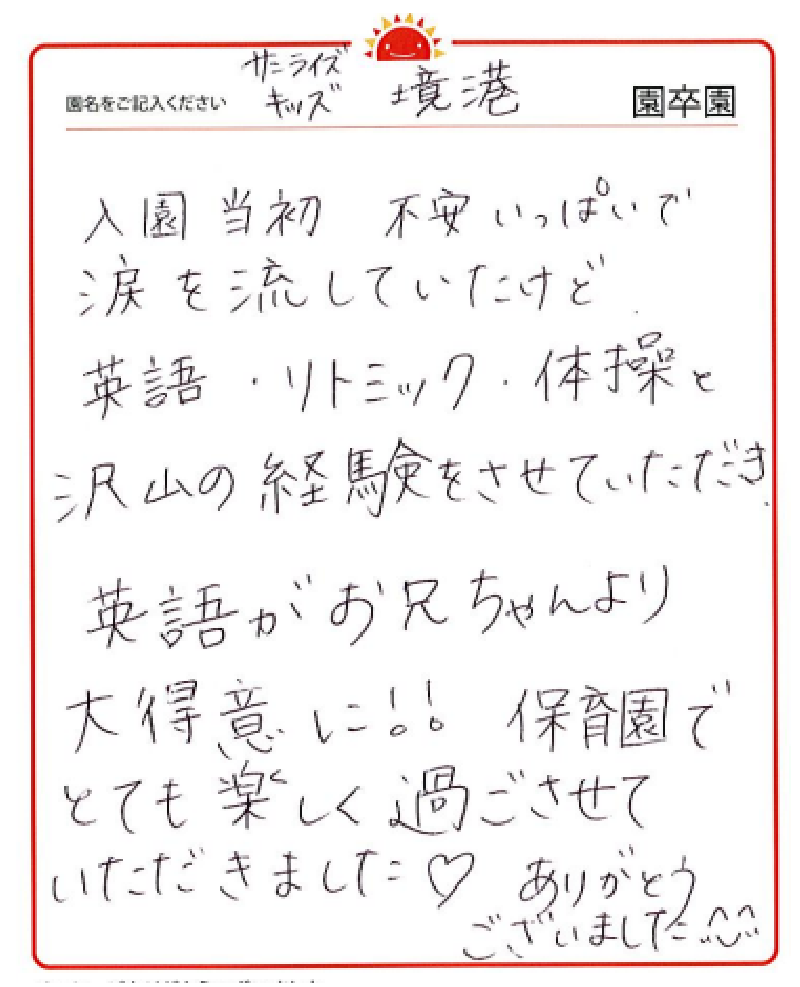 サンライズキッズ 境港
園名をご記入ください 園卒園
入園当初 不安いっぱいで
涙を流していたけど
英語・リトミック・体操と
沢山の経験をさせていただき
英語がお兄ちゃんより
大得意に!! 保育園で
とても楽しく過ごさせて
いただきました♡ ありがとう
ございました